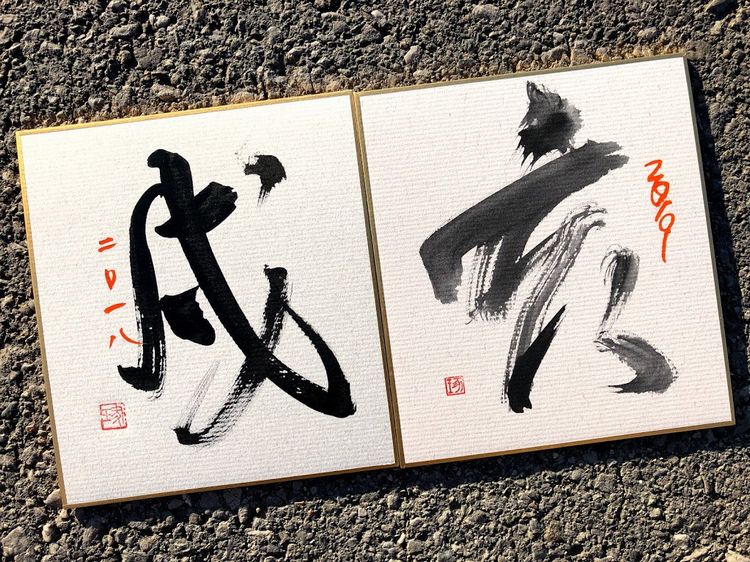 戌
二〇一八
亥
2019